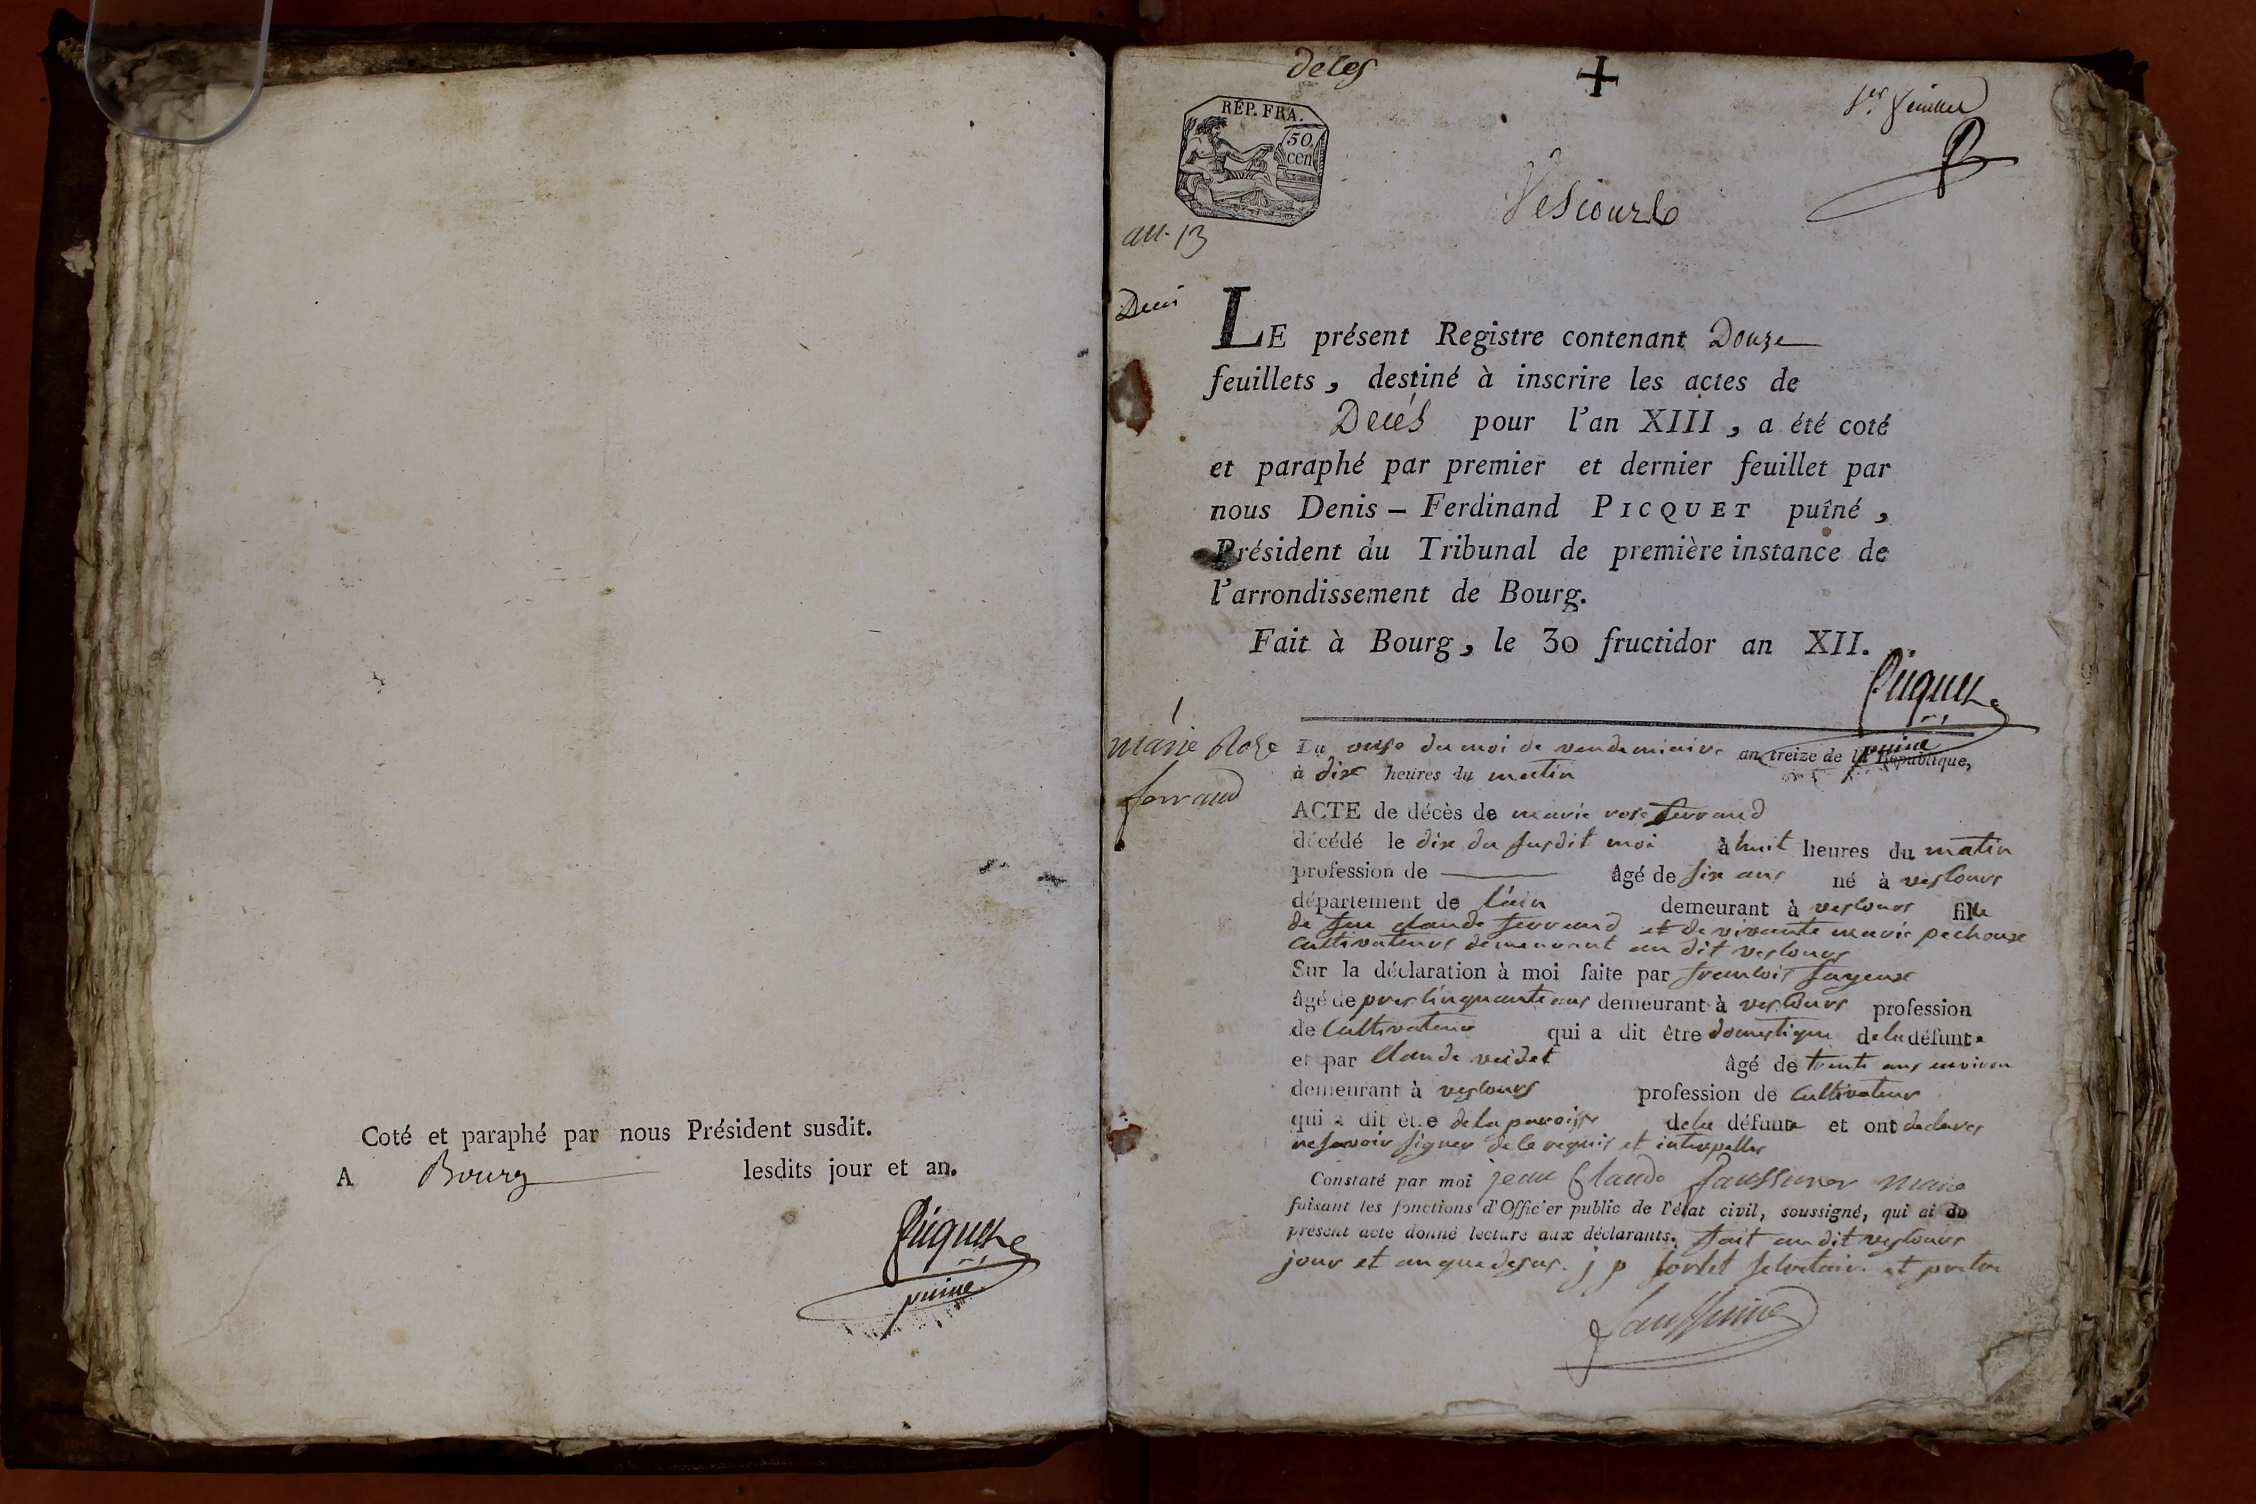 Coté et paraphé par nous Président susdit.
A Bourg lesdits jour et an.
Picquet
puiné
deces
+
1.er feuillet
RÉP. FRA.
50.
cen
Vescours
an. 13
Deces
LE présent Registre contenant Douze
feuillets, destiné à inscrire les actes de
Decés pour l'an XIII, a été coté
et paraphé par premier et dernier feuillet par
nous Denis – Ferdinand PICQUET puîné,
Président du Tribunal de première instance de
l'arrondissement de Bourg.
Fait à Bourg, le 30 fructidor an XII.
Picquet
puiné
1
marie Rose
ferrand
Du onse du moi de vendemiaire an treize de la République,
à dix heures du matin
ACTE de décès de marie rose ferrand
décédé le dix du susdit moi à huit heures du matin
profession de âgé de six ans né à vescours
département de l'ain demeurant à vescours fille
de feu claude ferrand et de vivante marie pechoux
cultivateurs demeurant au dit vescours
Sur la déclaration à moi faite par francois
âgé de pres cinquante ans demeurant à vescours profession
de cultivateur qui a dit être domestique de la défunte
et par claude âgé de trente ans environ
demeurant à vescours profession de cultivateur
qui a dit être de la paroisse de la défunte et ont declarer
ne savoir signer de ce requis et interpeller
Constaté par moi jean Claude maire
faisant les fonctions d'Officier public de l'état civil, soussigné, qui ai du
présent acte donné lecture aux déclarants. fait au dit vescours
jour et an que desus. j p secretaire et